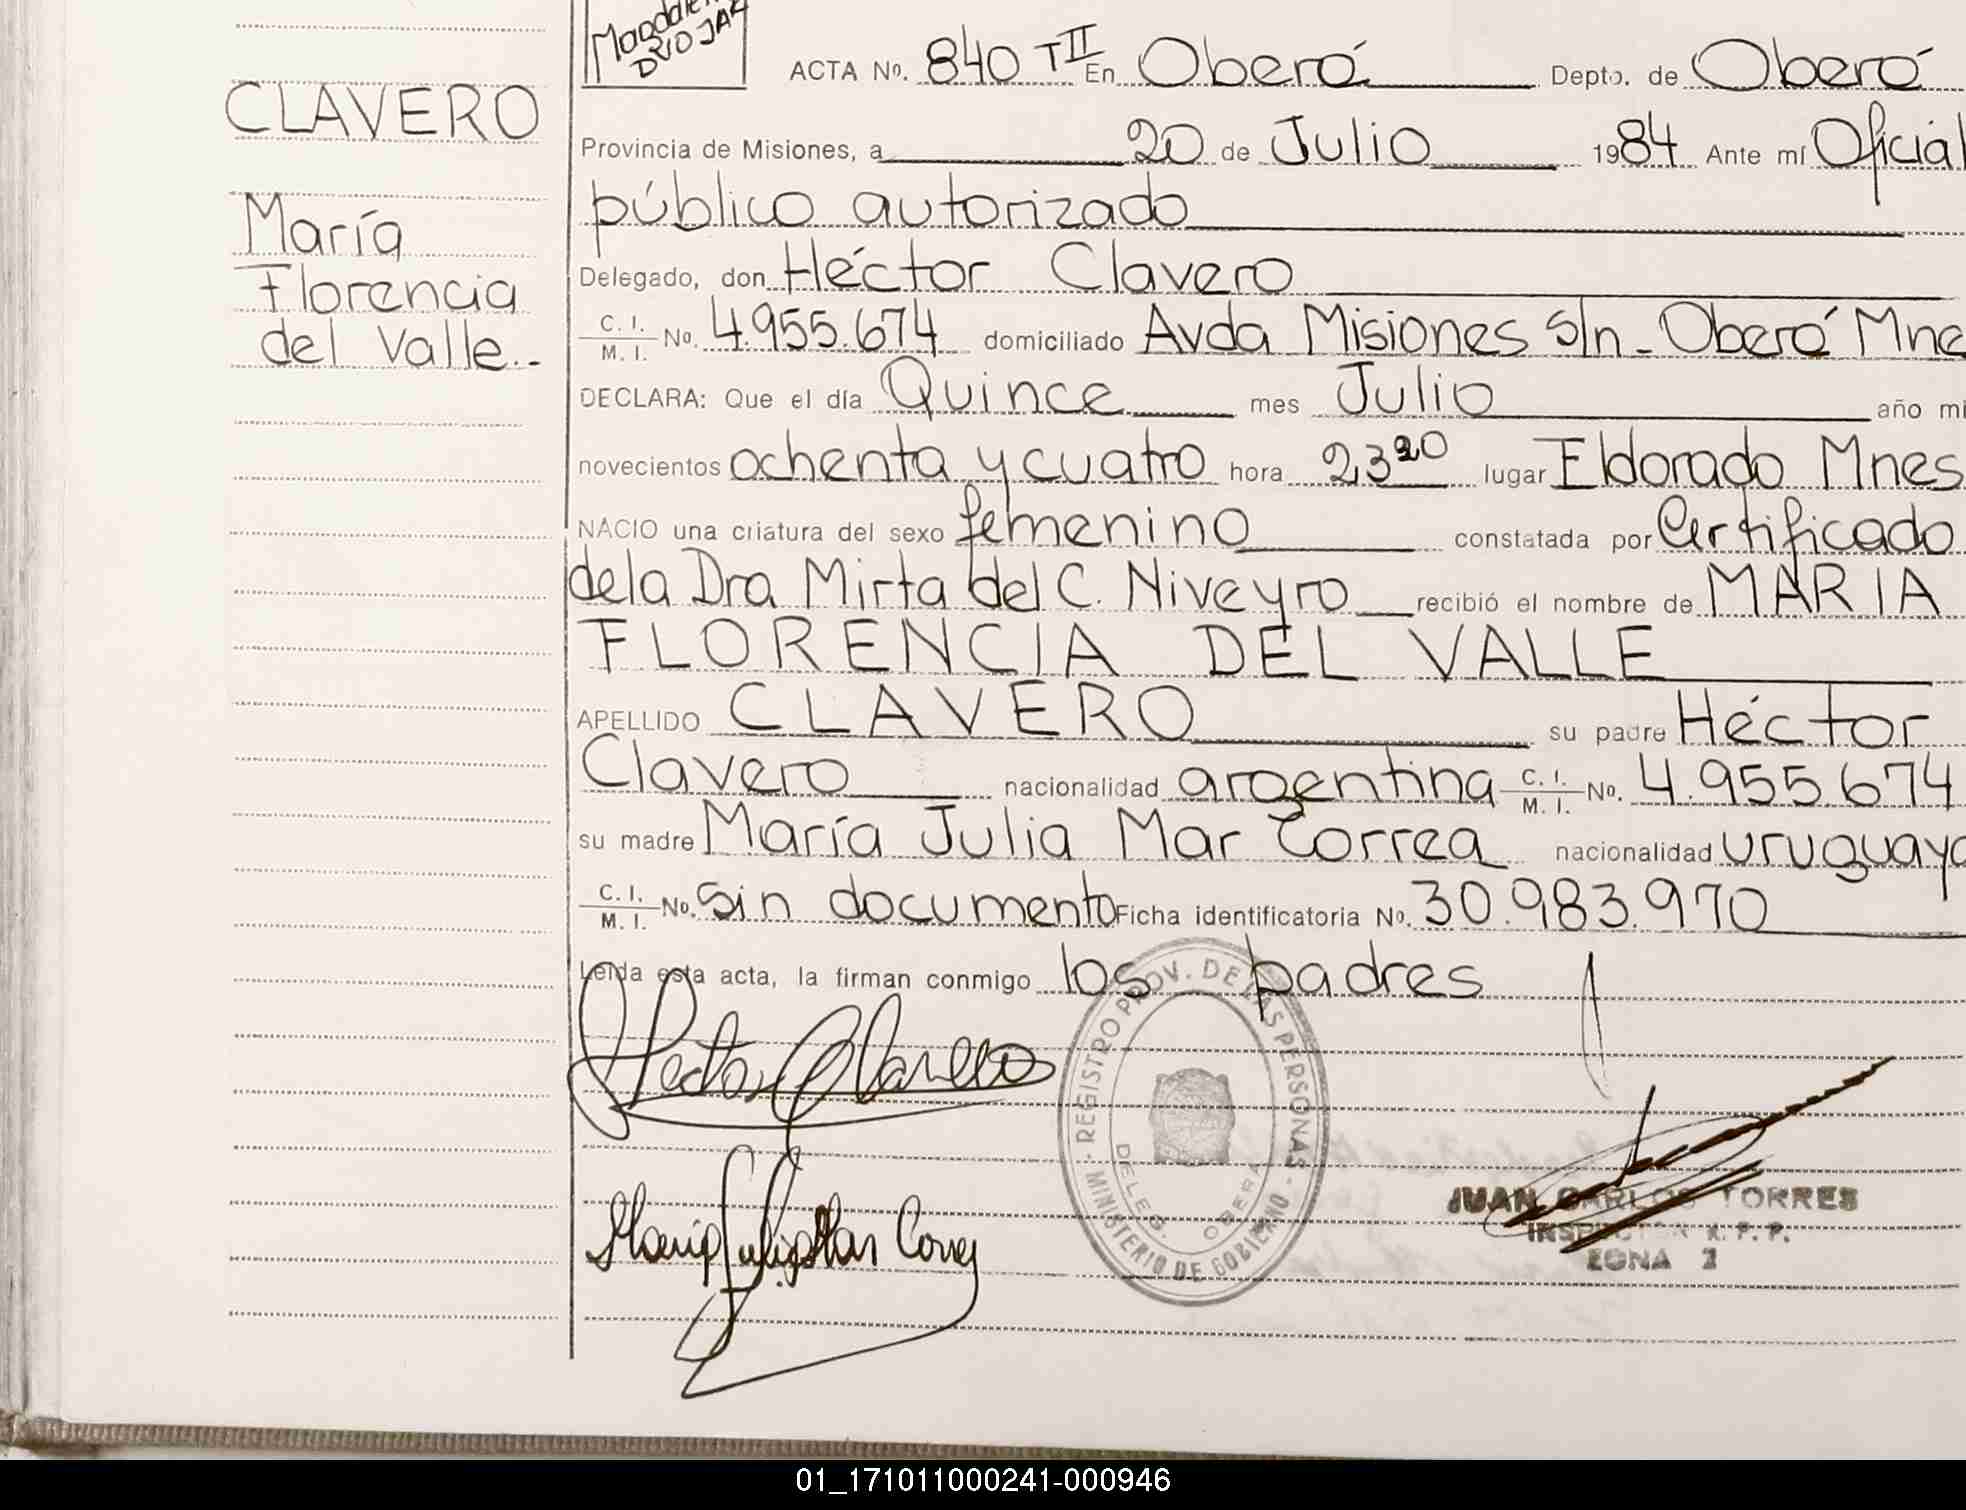 RIOJA
ACTA No. 840 TII En Oberá Depto. de Oberá
CLAVERO
Provincia de Misiones, a 20 de Julio 1984 Ante mí Oficial
público autorizado
María
Florencia
del Valle..
Delegado, don Héctor Clavero
C. I. M. I. No. 4.955.674 domiciliado Avda Misiones s/n - Oberá Mne
DECLARA: Que el día Quince mes Julio año mi
novecientos ochenta y cuatro hora 23 20 lugar Eldorado Mnes
NACIO una criatura del sexo femenino constatada por Certificado
dela Dra Mirta del C. Niveyro recibió el nombre de MARIA
FLORENCIA DEL VALLE
APELLIDO CLAVERO su padre Héctor
Clavero nacionalidad argentina C. I. M. I. No. 4.955.674
su madre María Julia Mar Correa nacionalidad uruguaya
C. I. M. I. No. sin documento Ficha identificatoria No. 30.983.970
Leída esta acta, la firman conmigo los padres
Hector Clavero
REGISTRO PROV. DE LAS PERSONAS - MINISTERIO DE GOBIERNO -
DELEG. OBERA
María Julia Mar Correa
JUAN CARLOS TORRES
INSPECTOR R. P. P.
ZONA 2
01_171011000241-000946